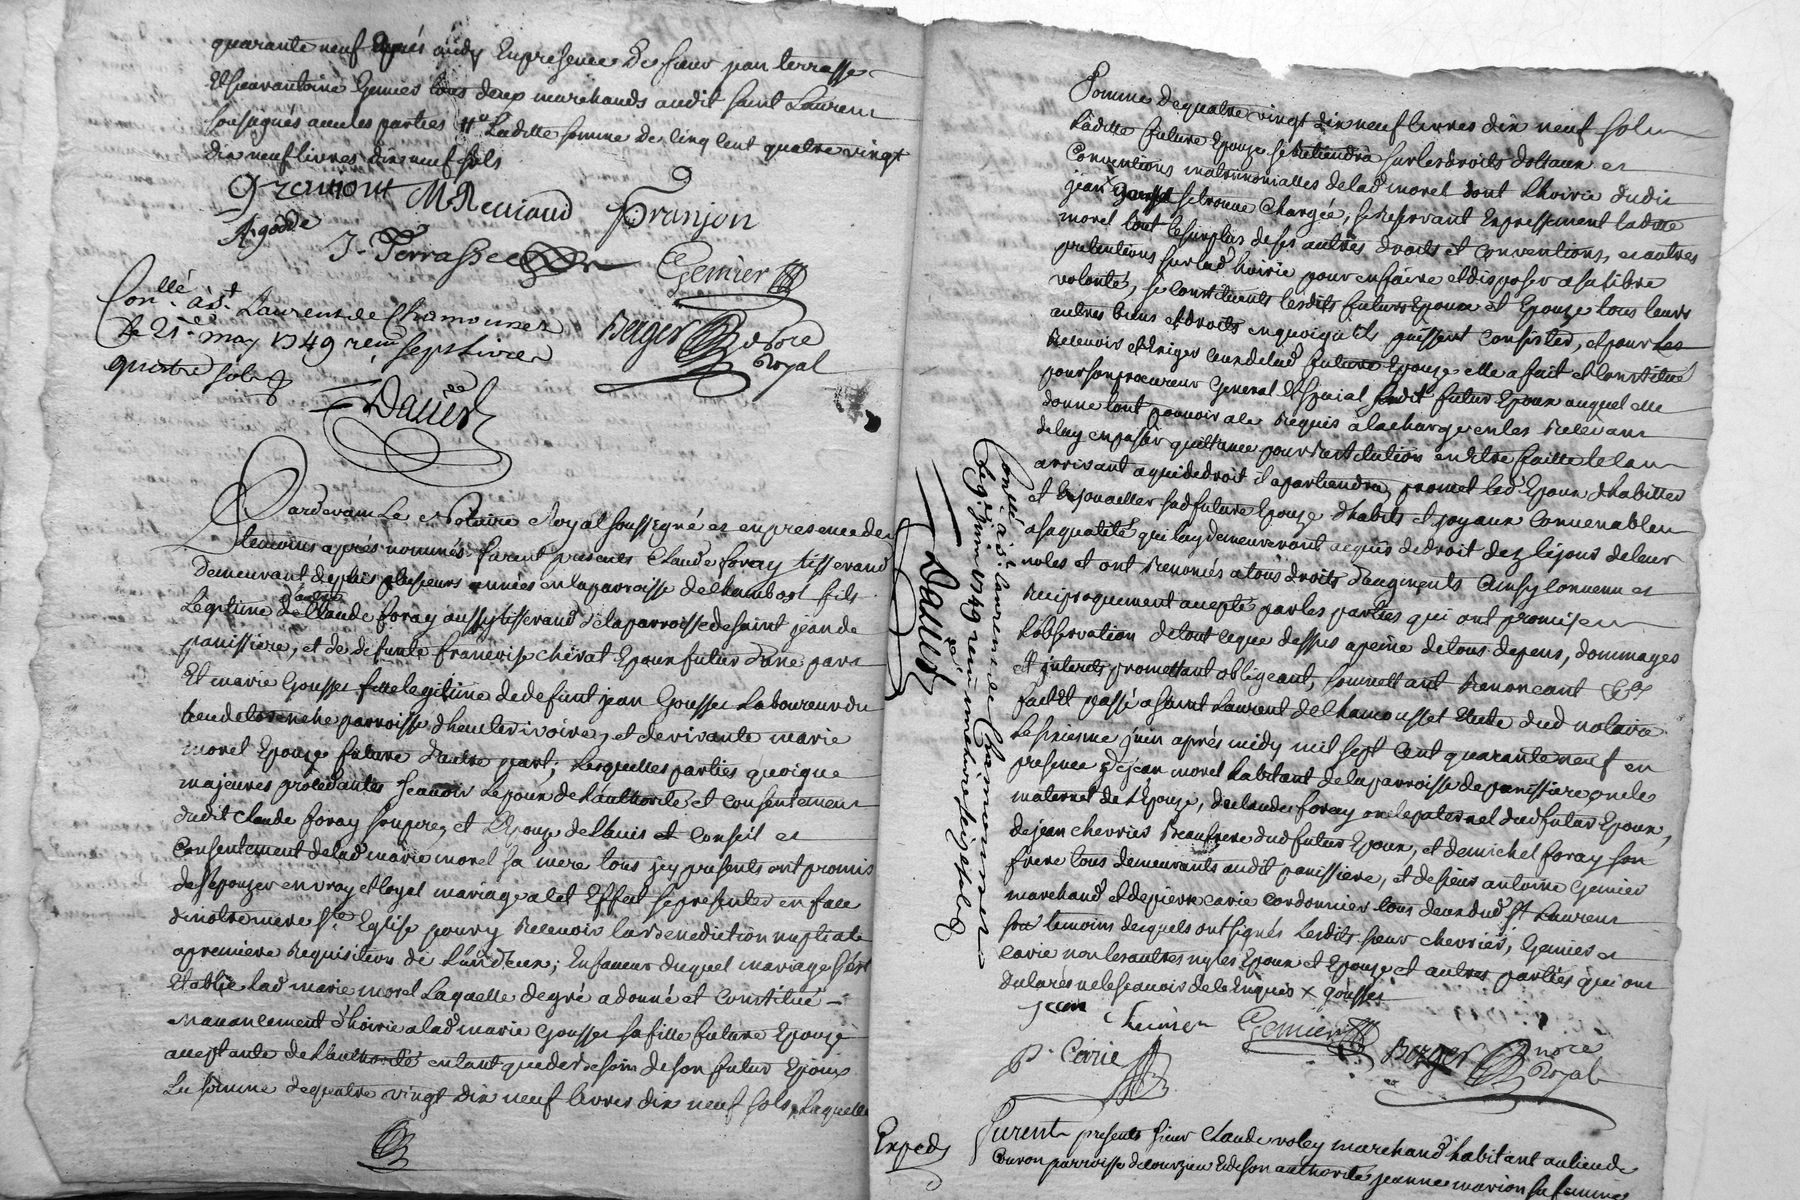 quarante neuf après midy En presence de sieur jean terrasse
Et sieur antoine Gemier tous deux marchands audit saint Laurent
soussignés avec les parties laditte somme de cinq cent quatre vingt
dix neuf livres dix neuf sols
Gremont M. Renaud
Franjon
A. godde
J. Terrasse
Gemier
Con.llé à S.t Laurent de Chamousset
Le 21.e may 1749 reçu sept livres
quatre sols
Berger No.re Royal
Davier
Pardevant Le Notaire Royal soussigné et en presence des
temoins après nommés furent presents Claude foray tisserand
Demeurant depuis plusieurs années en la parroisse de Chambost fils
Legitime d'autre Claude foray aussy tisserand de la parroisse de saint jean de
panissiere, et de defunte francoise chevat Epoux futur d'une part
Et marie Gousset fille legitime de defunt jean Gousset Laboureur du
lieu de parroisse d'hauterivoire, et de vivante marie
morel Epouze future d'autre part; Lesquelles parties quoique
majeures procedantes scavoir Lepoux de L'authorité et consentement
dudit Claude foray son pere, et L'Epouze de L'avis et conseil et
Consentement de lad marie morel sa mere tous icy presents ont promis
de s'epouzer en vray et loyal mariage a cet Effect se presenter en face
de notre mere S.te Eglise pour y Recevoir la benediction nuptiale
a premiere Requisition de L'un d'eux; En faveur duquel mariage s'est
Etablie lad marie morel Laquelle de gré a donné et constitué
en avancement d'hoirie a lad marie Gousset sa fille future Epouze
acceptante de L'authorité en tant que de besoin de son futur Epoux
La somme de quatre vingt dix neuf livres dix neuf sols, Laquelle
Somme de quatre vingt dix neuf livres dix neuf sols
Laditte future Epouze se retiendra sur les droits dotaux et
Conventions matrimonialles de lad morel dont L'hoirie dudit
jean gousset se trouve Chargée, se Reservant Expressement laditte
morel tout le surplus de ses autres droits et conventions, et autres
pretentions sur lad hoirie pour en faire et disposer a sa libre
volonté, se constituents lesdits futurs Epoux et Epouze tous leurs
autres biens et droits en quoi qu'ils puissent consister, et pour Les
Recevoir et Exiger ceux de lad future Epouze elle a fait et constitué
pour son procureur General et Special ledit futur Epoux auquel elle
donne tout pouvoir a ce Requis a la charge en les Recevant
de luy en passer quittance pour Restitution en Etre faitte le cas
arrivant a qui de droit il apartiendra, promet led Epoux d'habiller
et enjoualler sad future Epouze d'habits et joyaux convenables
a sa qualité qui luy demeureront acquis de droit dez le jour de leur
noces et ont Renoncés a tous droits d'augments Ainsy convenu et
Reciproquement accepté par les parties qui ont promis
L'observation de tout ce que dessus a peine de tous depens, dommages
et interets, promettant obligeant, soumettant Renonceant &.a
fait et passé a Saint Laurent de Chamousset Etude dud notaire
Le sixiesme juin après midy mil sept cent quarante neuf en
presence de jean morel habitant de la parroisse de panissiere oncle
maternel de L'Epouze, de claude foray oncle paternel dud futur Epoux,
de jean chevrier Beaufrere dud futur Epoux, et de michel foray son
frere tous demeurants audit panissiere, et de sieur antoine Gemier
marchand et de pierre carie cordonnier tous deux dud S.t Laurent
temoins desquels ont signés Lesdits sieur chevrier, Gemier et
carie non les autres ny les Epoux et Epouze et autres parties qui ont
declarés ne le scavoir de ce Enquis x gousset
jean Cheurier
Gemier
P. Carie
Berger No.re Royal
Con.llé à S.t Laurent de Chamousset
Le 9.e juin 1749 reçu une livre seize sols
Davier
Exped
Furent presents sieur Claude voley marchand habitant au lieu de
Couron parroisse de courzieu Et de son authorité jeanne marion sa femme